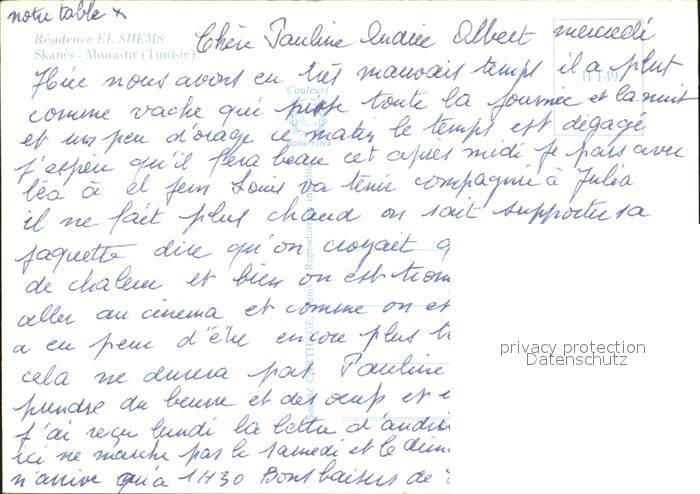 notre table x
Résidence EL SHEMS
Skanès - Monastir (Tunisie)
Chère Pauline Andrée Albert mercredi
Hier nous avons eu très mauvais temps il a plut
H 149
comme vache qui pisse toute la journée et la nuit
et un peu d'orage ce matin le temps est dégagé
j'espère qu'il fera beau cet après midi je pars avec
léa à el Jem Louis va tenir compagnie à Julia
il ne fait plus chaud on sait supporter sa
jaquette dire qu'on croyait
de chaleur et bien on est
aller au cinéma et comme on
a eu peur d'être encore plus
cela ne durera pas Pauline
prendre du beurre et des oeufs et
j'ai reçu lundi la lettre
ici ne marche pas le samedi et le
n'arrive qu'à 1H30 Bons baisers de
Couleurs
Naturelles
privacy protection
Datenschutz